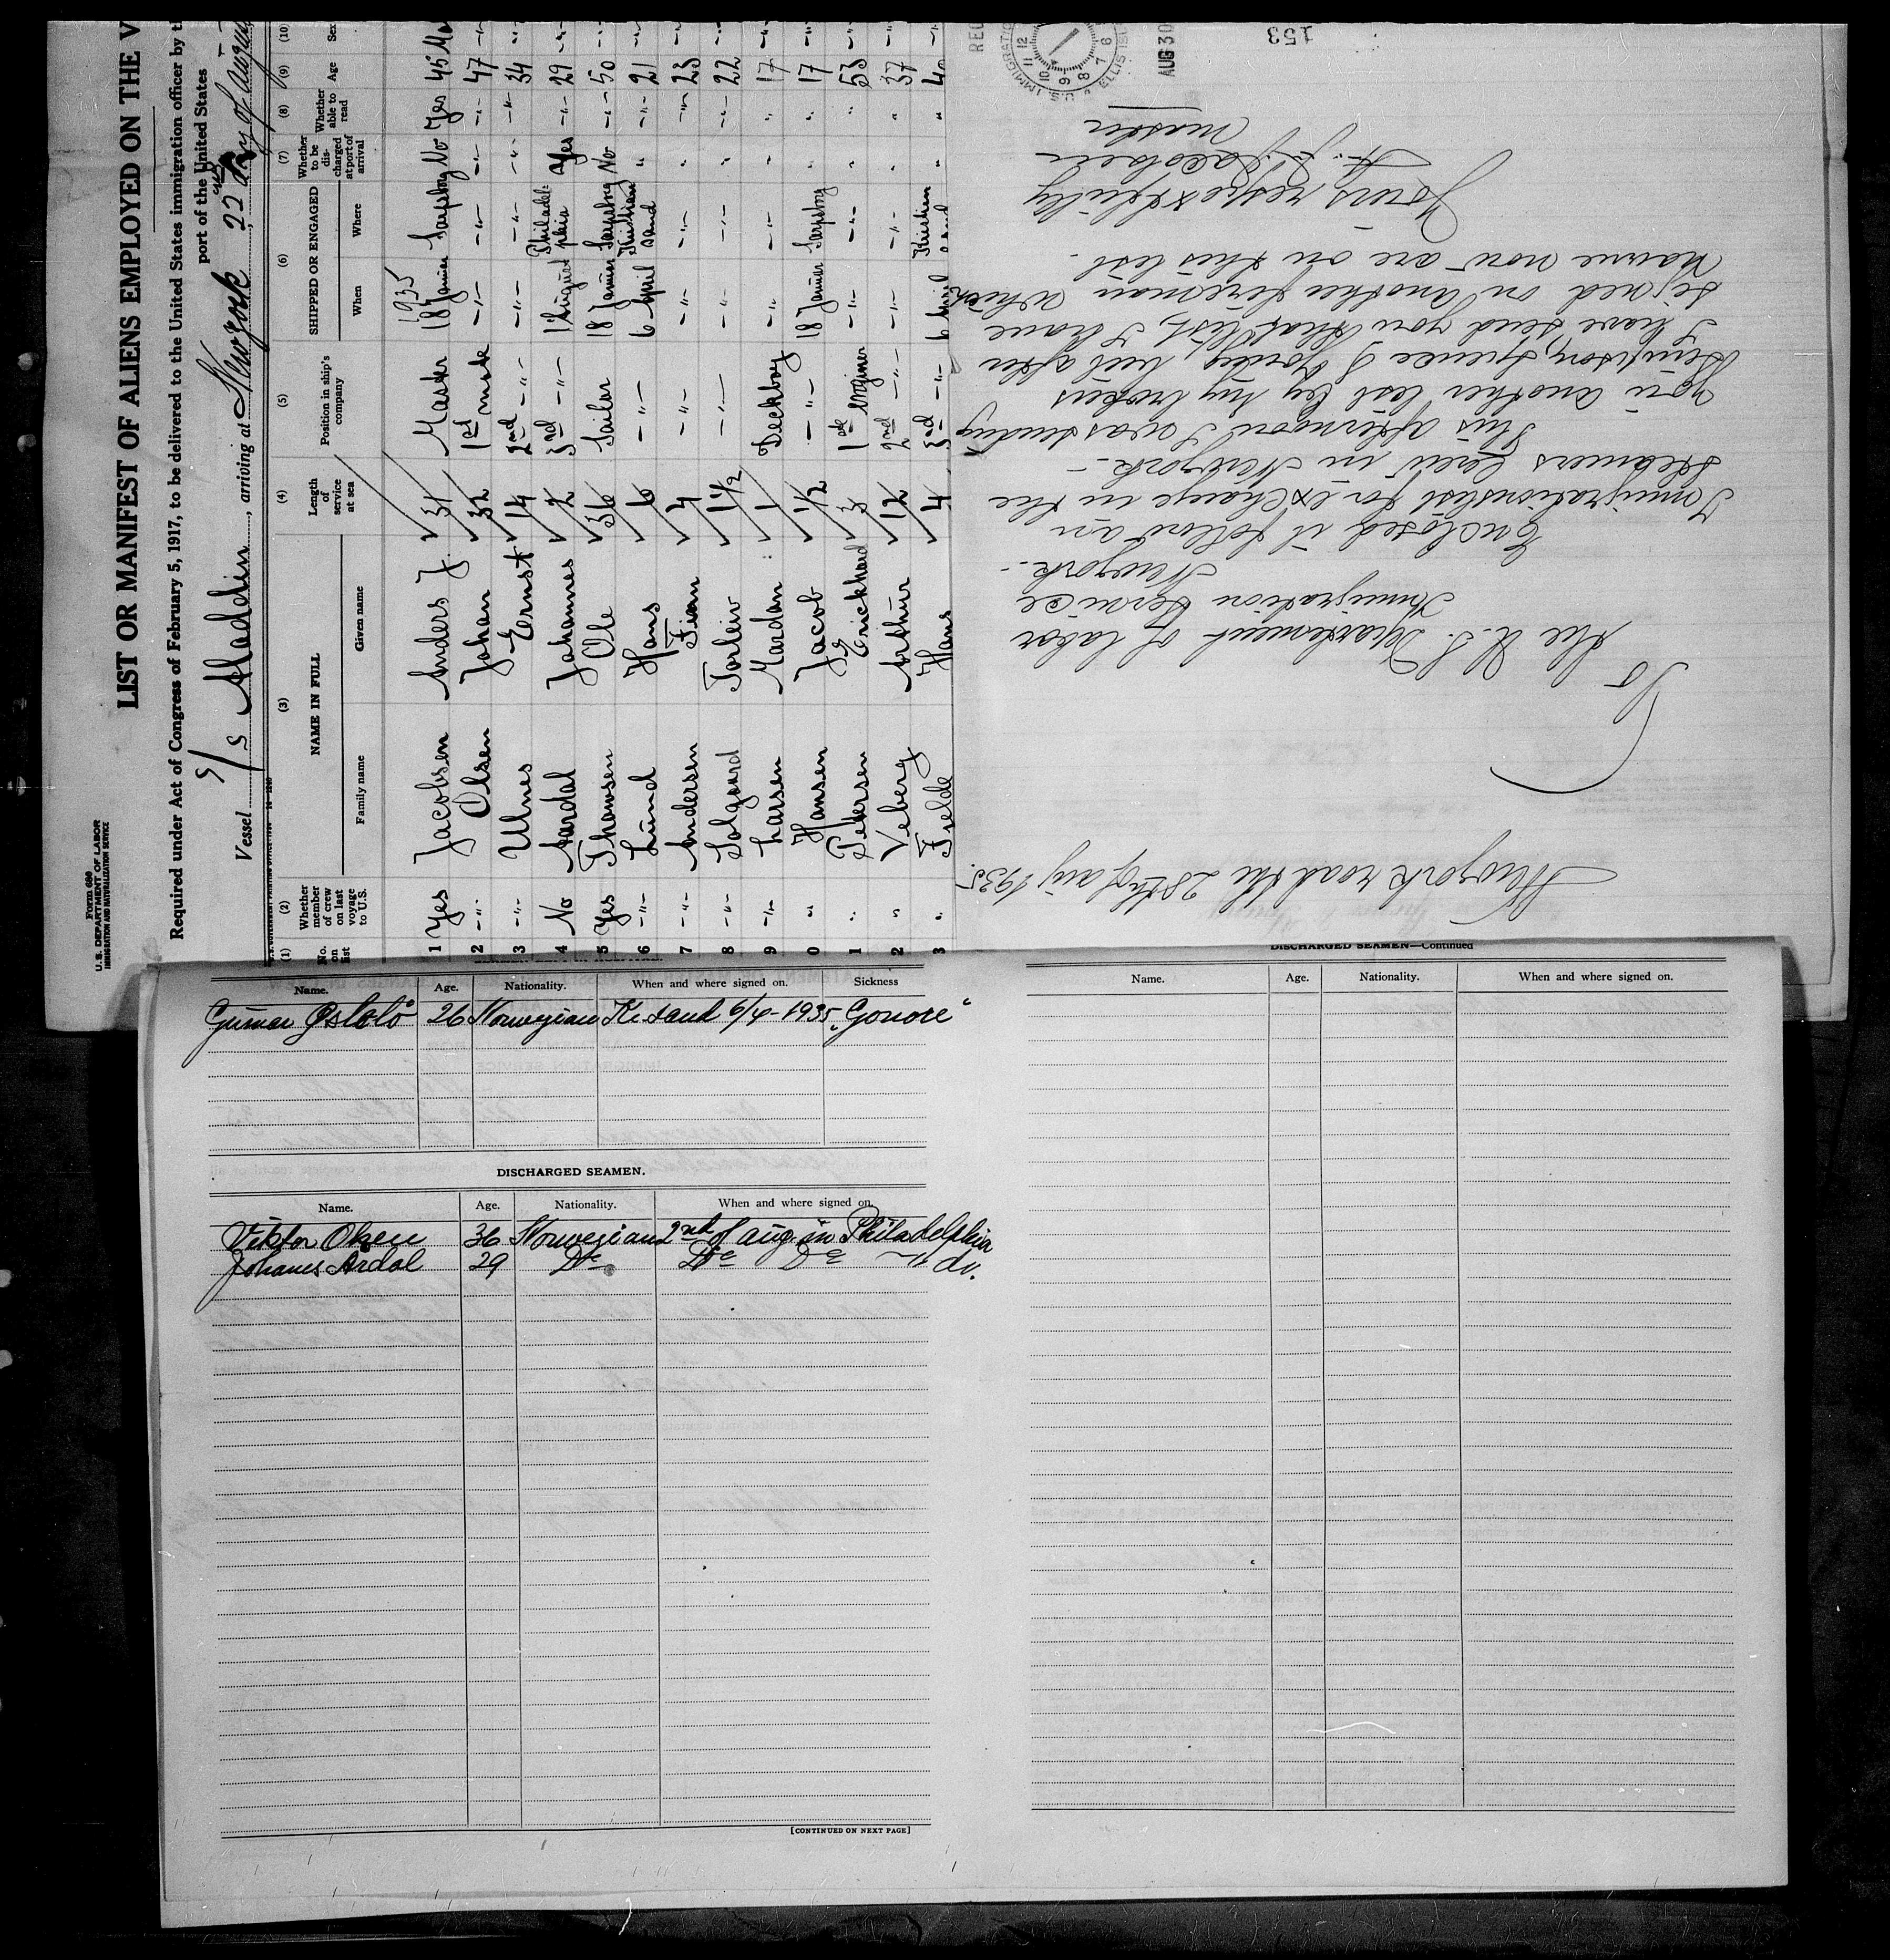 Form 680
U. S. DEPARTMENT OF LABOR
IMMIGRATION AND NATURALIZATION SERVICE
LIST OR MANIFEST OF ALIENS EMPLOYED ON THE V
Required under Act of Congress of February 5, 1917, to be delivered to the United States immigration officer by t
port of the United States
Vessel S/S Aladdin, arriving at Newyork, 22nd day of August
(1) (2) (3) (4) (5) (6) (7) (8) (9) (10)
No. on list Whether member of crew on last voyage to U.S. NAME IN FULL Family name Given name Length of service at sea Position in ship's company SHIPPED OR ENGAGED When Where Whether to be discharged at port of arrival Whether able to read Age Sex
1935
1 Yes Jacobsen Anders J. 31 Master 18 Januar Sarpsborg No Yes 45 Ma
2 -"- Olsen Johan 32 1st mate -"- -"- -"- -"- 47 -"-
3 -"- Ulnes Ernst 14 2nd -"- -"- -"- -"- -"- 34 -"-
4 No Aardal Johannes 2 3rd -"- 1 August Philadelphia Yes -"- 29 -"-
5 Yes Thowsen Ole 36 Sailor 18 Januar Sarpsborg No -"- 50 -"-
6 -"- Lund Hans 6 -"- 6 April Kristiansand " -"- 21 -"-
7 -"- Andersen Finn 4 -"- -"- -"- " -"- 23 -"-
8 -"- Solgaard Torleiv 1 1/2 -"- -"- -"- " -"- 22 -"-
9 -"- Larsen Mardan 1 Deckboy -"- -"- " " 17 -"-
0 " Hansen Jacob 1/2 -"- 18 Januar Sarpsborg " " 17 -"-
1 " Petersen Erickhard 3 1st Enginer -"- -"- " " 53 -"-
2 " Veberg Arthur 12 2nd -"- -"- -"- " " 37 -"-
3 " Hans 4 3rd -"- 6 April Kristiansand " " 40 -"-
Newyork road the 28th of aug 1935.
To
the U. S. Departement of labor
Immigration Service
Newyork.-
Enclosed it follow an
Immigrationslist for exchange in the
steamers crew in Newyork.-
This afternoon I was sending
you another list by my brokers
I have send you that list, I have
signed on another fireman which
name now are on this list.
Yours respectfully
Jacobsen
Master
REC
U. S. IMMIGRATIO
ELLIS ISL
12 11 10 9 8 7 6
AUG 30
153
Name. Age. Nationality. When and where signed on. Sickness
Gunnar 26 Norwegian Kr. sand 6/4-1935 „Gonore"
DISCHARGED SEAMEN.
Name. Age. Nationality. When and where signed on.
Viktor Olsen 36 Norwegian 2nd of aug. in Philadelphia
Johanes Ardal 29 Do Do Do —" do.
[CONTINUED ON NEXT PAGE]
DISCHARGED SEAMEN—Continued
Name. Age. Nationality. When and where signed on.